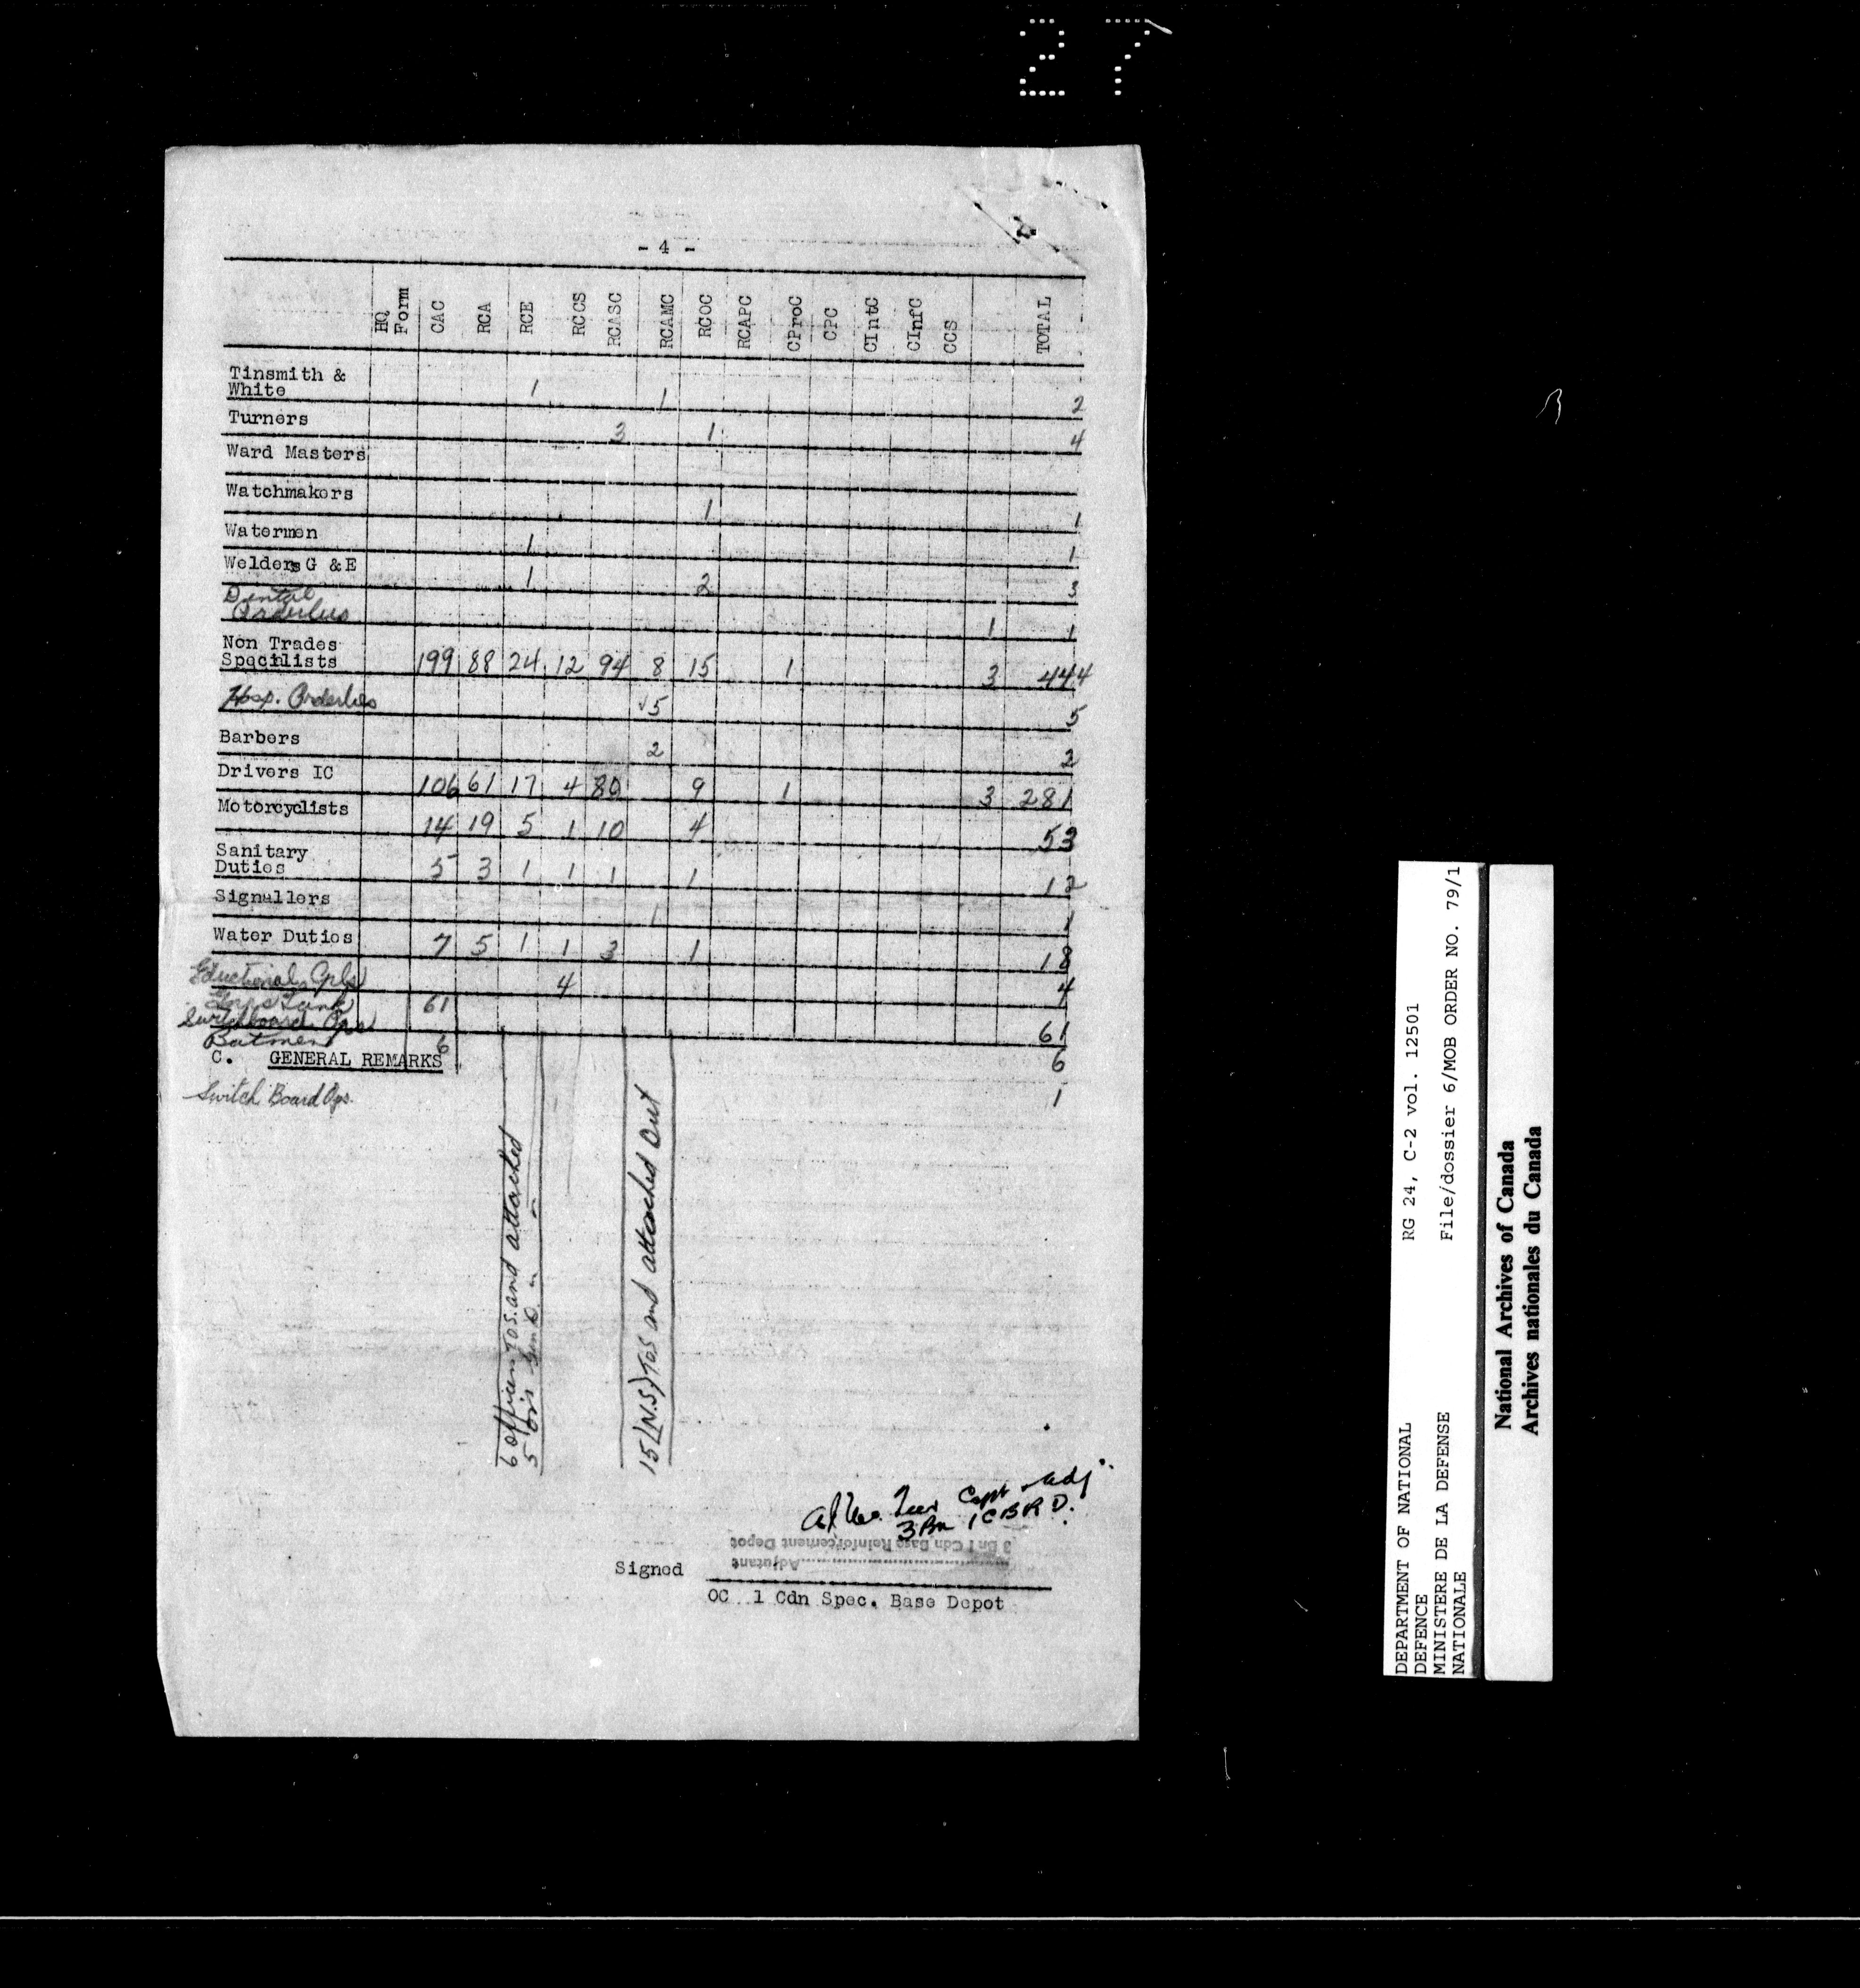 27
- 4 -
HQ Form CAC RCA RCE RCCS RCASC RCAMC RCOC RCAPC CProC CPC CIntC CInfC CCS TOTAL
Tinsmith &
White 1 1 2
Turners 3 1 4
Ward Masters
Watchmakers 1 1
Watermen 1 1
Welders G & E 1 2 3
Dental
Orderlies 1 1
Non Trades
Specilists 199 88 24 12 94 8 15 1 3 444
Hosp. Orderlies √5 5
Barbers 2 2
Drivers IC 106 61 17 4 80 9 1 3 281
Motorcyclists 14 19 5 1 10 4 53
Sanitary
Duties 5 3 1 1 1 1 12
Signallers 1 1
Water Duties 7 5 1 1 3 1 18
Eductional Cpls 4 4
Tank 61
Switchboard Ops 61
Batmen 6 6
C. GENERAL REMARKS
Switch Board Ops. 1
6 officers TOS. and attached
5 ORs
15 (N.S) TOS and attached out
Capt Adj
3 Bn 1 CBRD.
3 Bn 1 Cdn Base Reinforcement Depot
Adjutant
Signed
OC 1 Cdn Spec. Base Depot
DEPARTMENT OF NATIONAL
DEFENCE
MINISTERE DE LA DEFENSE
NATIONALE
RG 24, C-2 vol. 12501
File/dossier 6/MOB ORDER NO. 79/1
National Archives of Canada
Archives nationales du Canada